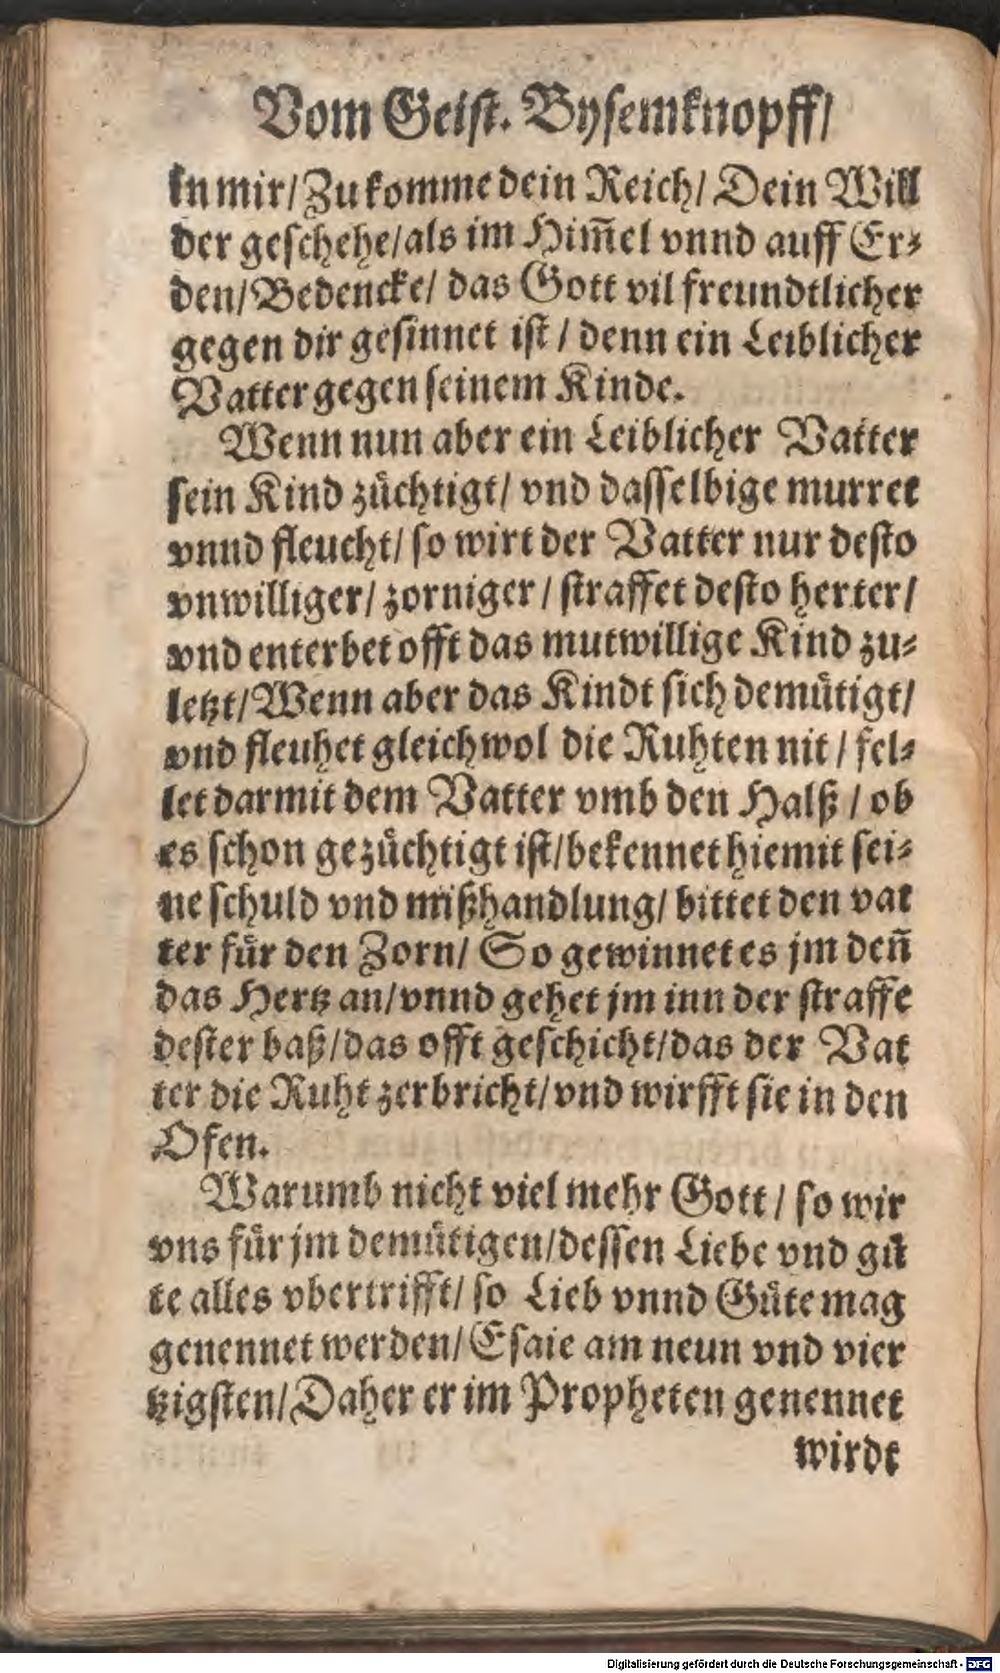 Vom Geist. Bysemknopff/
in mir/ Zukomme dein Reich/ Dein Will
der geschehe/ als im Him̄el vnnd auff Er⸗
den/ Bedencke/ das Gott vil freundtlicher
gegen dir gesinnet ist / denn ein Leiblicher
Vatter gegen seinem Kinde.
Wenn nun aber ein Leiblicher Vatter
sein Kind zuͤchtigt/ vnd dasselbige murret
vnnd fleucht/ so wirt der Vatter nur desto
vnwilliger/ zorniger / straffet desto herter/
vnd enterbet offt das mutwillige Kind zu⸗
letzt/ Wenn aber das Kindt sich demuͤtigt/
vnd fleuhet gleichwol die Ruhten nit / fel⸗
let darmit dem Vatter vmb den Halß / ob
es schon gezuͤchtigt ist/ bekennet hiemit sei⸗
ne schuld vnd mißhandlung/ bittet den vat
ter fuͤr den Zorn/ So gewinnet es jm den̄
das Hertz an/ vnnd gehet jm inn der straffe
dester baß/ das offt geschicht/ das der Vat
ter die Ruht zerbricht/ vnd wirfft sie in den
Ofen.
Warumb nicht viel mehr Gott / so wir
vns fuͤr jm demuͤtigen/ dessen Liebe vnd guͤ
te alles vbertrifft/ so Lieb vnnd Guͤte mag
genennet werden/ Esaie am neun vnd vier
tzigsten/ Daher er im Propheten genennet
wirdt
Digitalisierung gefördert durch die Deutsche Forschungsgemeinschaft - DFG